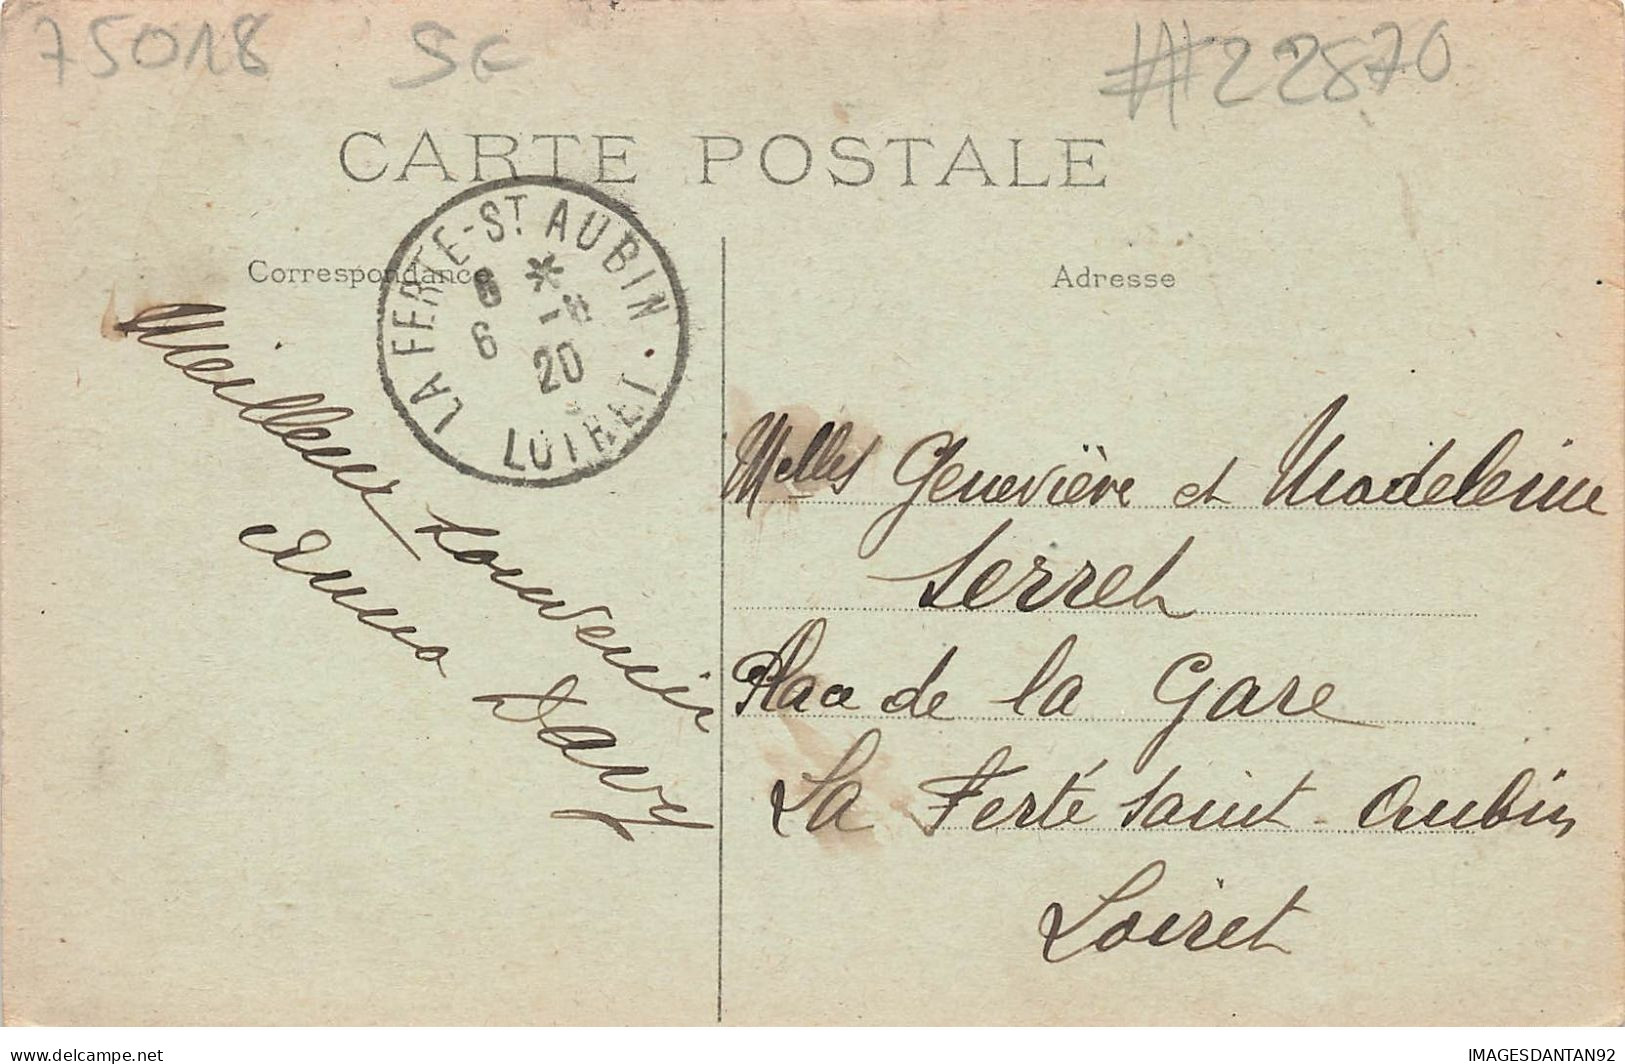 75018 5€ #22870
CARTE POSTALE
Correspondance
Adresse
LA FERTE-ST AUBIN
8 *
6 -8
20
LOIRET
Meilleur souvenir
Anna Davy
Melles Geneviève et Madeleine
Serret
Place de la Gare
La Ferté Saint-Aubin
Loiret
delcampe.net
IMAGESDANTAN92